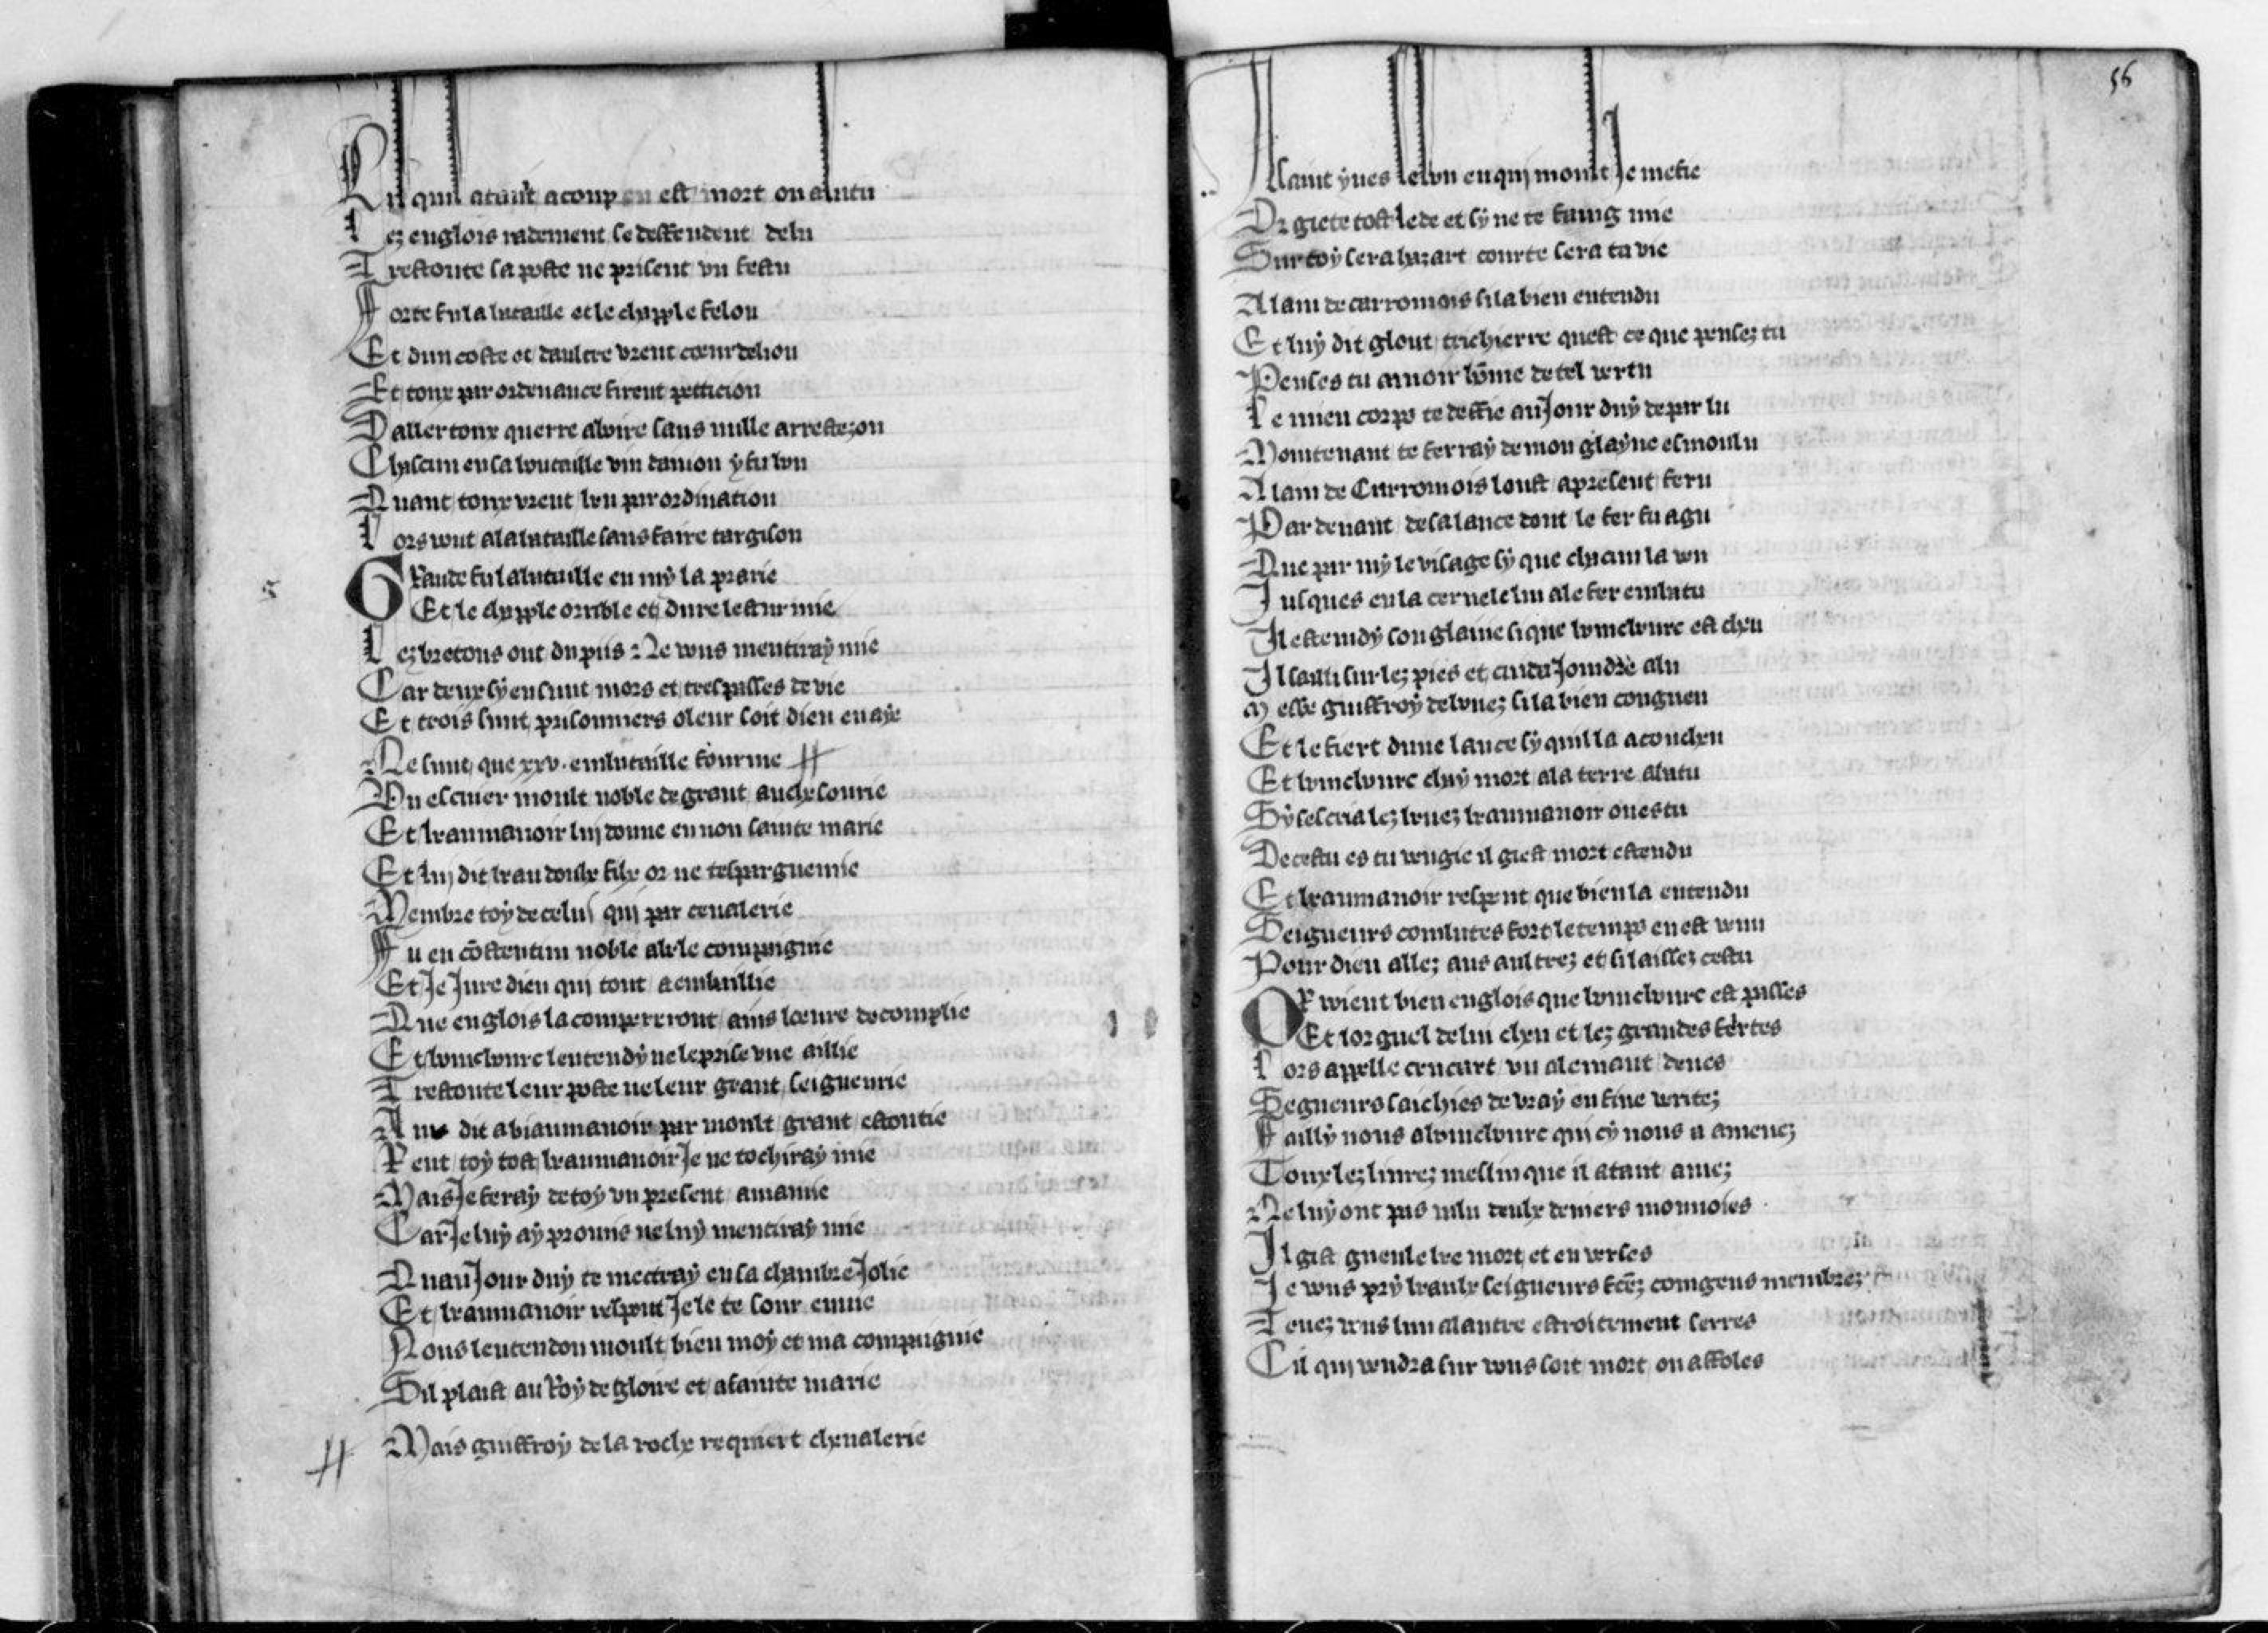 Cil quil ataint a coup est mort ou abatu
Lez englois radement se deffendent delu
Trestoute sa poste ne prisent un festu
Forte fu la bataille et le chapple felon
Et dun coste et daultre urent cœur de lion
Et toux par ordenance firent petticion
Daller toux querre a boire sans nulle arrestezon
Chascun en sa boutaille vin danion y fu bon
Quant toux urent beu par ordination
Lors vont a la bataille sans faire targison
Grande fu la bataille en my la prarie
Et le chapple orrible et dure lesturmie
Lez bretons ont du piis Ne vous mentiray mie
Car deux sy en sunt mors et trespasses de vie
Et trois sunt prisonniers o leur soit dieu en aye
Ne sunt que xxv. en bataille fournie
Un escuier moult noble de grant anchesourie
Et beaumanoir luj donne en non sainte marie
Et luj dit beau doulx filx or ne tespargne mie
Membre toy de celuj quj par cevalerie
Fu en cōstentin noble a la compaignie
Et Je Jure dieu quj tout a em baillie
Que englois la comperreront ains lœure de complie
Et bomebourc lentendy ne le prise une aillie
Trestoute leur poste ne leur grant seigneurie
Ains dit a biaumanoir par moult grant estoutie
Rent toy tost beaumanoir Je ne tochiray mie
Mais Je feray de toy un present a mamie
Car Je luy ay promis ne luy mentiray mie
Quau Jour duy te mettray en sa chambre Jolie
Et beaumanoir respont Je le te sour envie
Nous lentendon moult bien moy et ma compaignie
Sil plaist au Roy de gloire et a sainte marie
Mais guiffroy de la roche requiert chevalerie
56
A saint yves le bon en quj moult Je me fie
Or giete tost le de et sy ne te faing mie
Sur toy sera hazart courte sera ta vie
Alain de carromois si la bien entendu
Et luy dit glout trichierre quest ce que pensez tu
Penses tu avoir hōme de tel vertu
Le mien corps te deffie au Jour duy de par lu
Maintenant te ferray de mon glayve esmoulu
Alain de Carromois loust a present feru
Par devant de sa lance dont le fer fu agu
Que par my le visage sy que chacun la vu
Jusques en la cervele lui a le fer embatu
Il estendy son glaive si que bomebourc est cheu
Il sauti sur lez pies et cuida Joindre a lu
messe guiffroy de bouez si la bien congneu
Et le fiert dune lance sy quil la a couchu
Et bomebourc chay mort a la terre abatu
Sy sescria lez bouez beaumanoir ou es tu
De cestu es tu vengie il gist mort estendu
Et beaumanoir respont que bien la entendu
Seigneurs combates fort le temps en est venu
Pour dieu allez aus aultrez et si laissez cestu
Or voient bien englois que bomebourc est passes
Et lorguel de lui cheu et lez grandes fertes
Lors appelle crucart un alemant deves
Segneurs saichies de vray en fine verite;
Failly nous a bomebourc qui cy nous a amenez
Toux lez livrez mellin que il a tant amez
Ne luy ont pas valu deulx deniers monnoies
Il gist gueule bee mort et en verses
Je vous pry beaulx seigneurs fetē; com gens membrez
Tenez vous lun a lautre estroitement serres
Cil quj vendra sur vous soit mort ou affoles